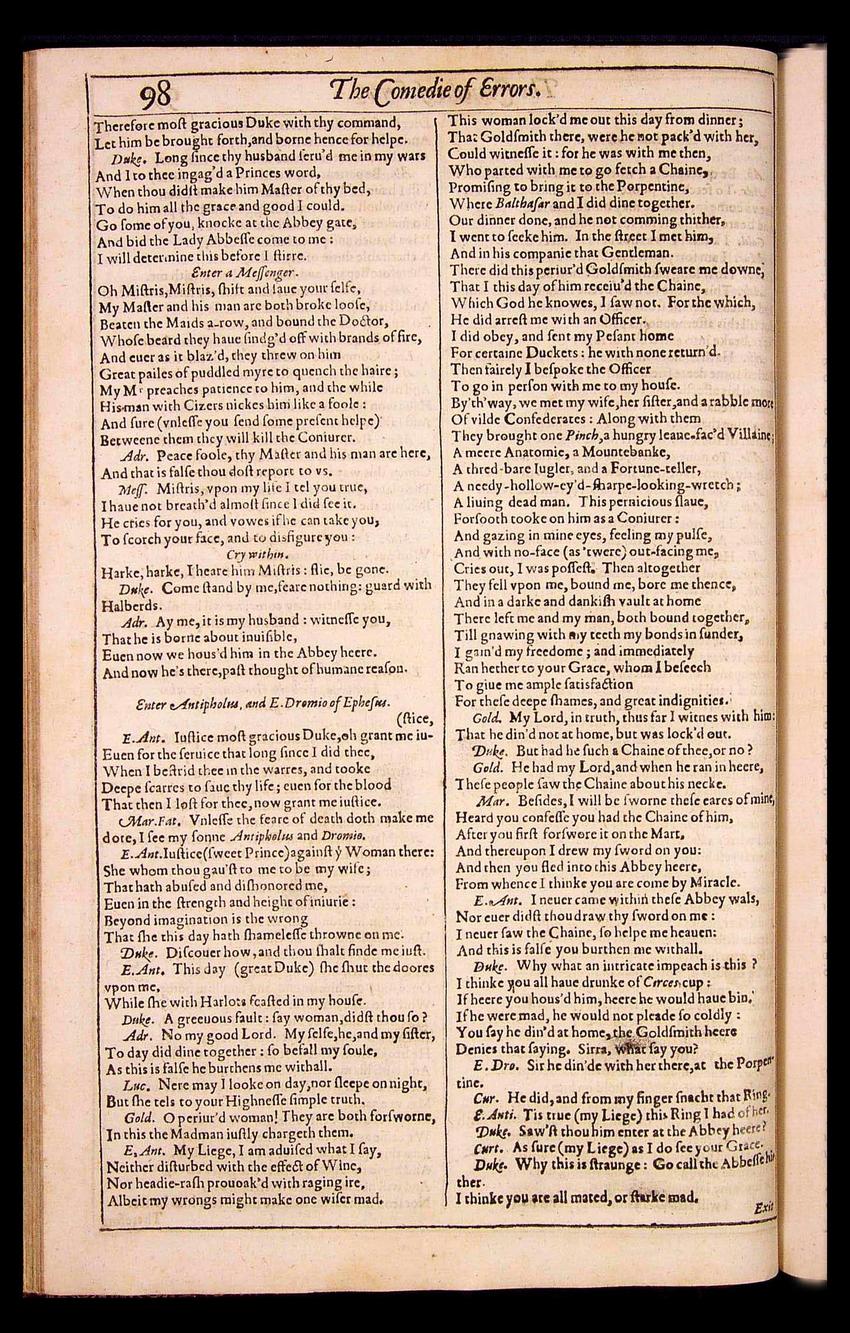 98
The Comedie of Errors.
Therefore moſt gracious Duke with thy command,
Let him be brought forth,and borne hence for helpe.
Duke. Long ſince thy husband ſeru'd me in my wars
And I to thee ingag'd a Princes word,
When thou didſt make him Maſter of thy bed,
To do him all the grace and good I could.
Go ſome of you, knocke at the Abbey gate,
And bid the Lady Abbeſſe come to me :
I will determine this before I ſtirre.
Enter a Meſſenger.
Oh Miſtris,Miſtris, ſhift and ſaue your ſelfe,
My Maſter and his man are both broke looſe,
Beaten the Maids a-row, and bound the Doctor,
Whoſe beard they haue ſindg'd off with brands of fire,
And euer as it blaz'd, they threw on him
Great pailes of puddled myre to quench the haire ;
My Mr preaches patience to him, and the while
His man with Cizers nickes him like a foole :
And ſure (vnleſſe you ſend ſome preſent helpe)
Betweene them they will kill the Coniurer.
Adr. Peace foole, thy Maſter and his man are here,
And that is falſe thou doſt report to vs.
Meſſ. Miſtris, vpon my life I tel you true,
I haue not breath'd almoſt ſince I did ſee it.
He cries for you, and vowes if he can take you,
To ſcorch your face, and to disfigure you :
Cry within.
Harke, harke, I heare him Miſtris : flie, be gone.
Duke. Come ſtand by me,feare nothing: guard with
Halberds.
Adr. Ay me, it is my husband : witneſſe you,
That he is borne about inuiſible,
Euen now we hous'd him in the Abbey heere.
And now he's there,paſt thought of humane reaſon.
Enter Antipholus, and E.Dromio of Epheſus.
(ſtice,
E.Ant. Iuſtice moſt gracious Duke,oh grant me iu-
Euen for the ſeruice that long ſince I did thee,
When I beſtrid thee in the warres, and tooke
Deepe ſcarres to ſaue thy life ; euen for the blood
That then I loſt for thee,now grant me iuſtice.
Mar.Fat. Vnleſſe the feare of death doth make me
dote, I ſee my ſonne Antipholus and Dromio.
E.Ant.Iuſtice(ſweet Prince)againſt yͭ Woman there:
She whom thou gau'ſt to me to be my wife ;
That hath abuſed and diſhonored me,
Euen in the ſtrength and height of iniurie :
Beyond imagination is the wrong
That ſhe this day hath ſhameleſſe throwne on me.
Duke. Diſcouer how, and thou ſhalt finde me iuſt.
E.Ant. This day (great Duke) ſhe ſhut the doores
vpon me,
While ſhe with Harlots feaſted in my houſe.
Duke. A greeuous fault : ſay woman,didſt thou ſo ?
Adr. No my good Lord. My ſelfe,he,and my ſiſter,
To day did dine together : ſo befall my ſoule,
As this is falſe he burthens me withall.
Luc. Nere may I looke on day,nor ſleepe on night,
But ſhe tels to your Highneſſe ſimple truth.
Gold. O periur'd woman! They are both forſworne,
In this the Madman iuſtly chargeth them.
E.Ant. My Liege, I am aduiſed what I ſay,
Neither diſturbed with the effect of Wine,
Nor headie-raſh prouoak'd with raging ire,
Albeit my wrongs might make one wiſer mad.
This woman lock'd me out this day from dinner ;
That Goldſmith there, were he not pack'd with her,
Could witneſſe it : for he was with me then,
Who parted with me to go fetch a Chaine,
Promiſing to bring it to the Porpentine,
Where Balthaſar and I did dine together.
Our dinner done, and he not comming thither,
I went to ſeeke him. In the ſtreet I met him,
And in his companie that Gentleman.
There did this periur'd Goldſmith ſweare me downe,
That I this day of him receiu'd the Chaine,
Which God he knowes, I ſaw not. For the which,
He did arreſt me with an Officer.
I did obey, and ſent my Peſant home
For certaine Duckets : he with none return'd.
Then fairely I beſpoke the Officer
To go in perſon with me to my houſe.
By'th'way, we met my wife,her ſiſter,and a rabble more
Of vilde Confederates : Along with them
They brought one Pinch,a hungry leane-fac'd Villaine;
A meere Anatomie, a Mountebanke,
A thred-bare Iugler, and a Fortune-teller,
A needy-hollow-ey'd-ſharpe-looking-wretch ;
A liuing dead man. This pernicious ſlaue,
Forſooth tooke on him as a Coniurer :
And gazing in mine eyes, feeling my pulſe,
And with no-face (as 'twere) out-facing me,
Cries out, I was poſſeſt. Then altogether
They fell vpon me, bound me, bore me thence,
And in a darke and dankiſh vault at home
There left me and my man, both bound together,
Till gnawing with my teeth my bonds in ſunder,
I gain'd my freedome ; and immediately
Ran hether to your Grace, whom I beſeech
To giue me ample ſatisfaction
For theſe deepe ſhames, and great indignities.
Gold. My Lord, in truth, thus far I witnes with him:
That he din'd not at home, but was lock'd out.
Duke. But had he ſuch a Chaine of thee,or no ?
Gold. He had my Lord,and when he ran in heere,
Theſe people ſaw the Chaine about his necke.
Mar. Beſides, I will be ſworne theſe eares of mine,
Heard you confeſſe you had the Chaine of him,
After you firſt forſwore it on the Mart,
And thereupon I drew my ſword on you:
And then you fled into this Abbey heere,
From whence I thinke you are come by Miracle.
E.Ant. I neuer came within theſe Abbey wals,
Nor euer didſt thou draw thy ſword on me :
I neuer ſaw the Chaine, ſo helpe me heauen:
And this is falſe you burthen me withall.
Duke. Why what an intricate impeach is this ?
I thinke you all haue drunke of Circes cup :
If heere you hous'd him, heere he would haue bin.
If he were mad, he would not pleade ſo coldly :
You ſay he din'd at home, the Goldſmith heere
Denies that ſaying. Sirra, what ſay you?
E.Dro. Sir he din'de with her there,at the Porpen-
tine.
Cur. He did,and from my finger ſnacht that Ring.
E.Anti. Tis true (my Liege) this Ring I had of her.
Duke. Saw'ſt thou him enter at the Abbey heere?
Curt. As ſure (my Liege) as I do ſee your Grace.
Duke. Why this is ſtraunge: Go call the Abbeſſe hi-
ther.
I thinke you are all mated, or ſtarke mad.
Exit